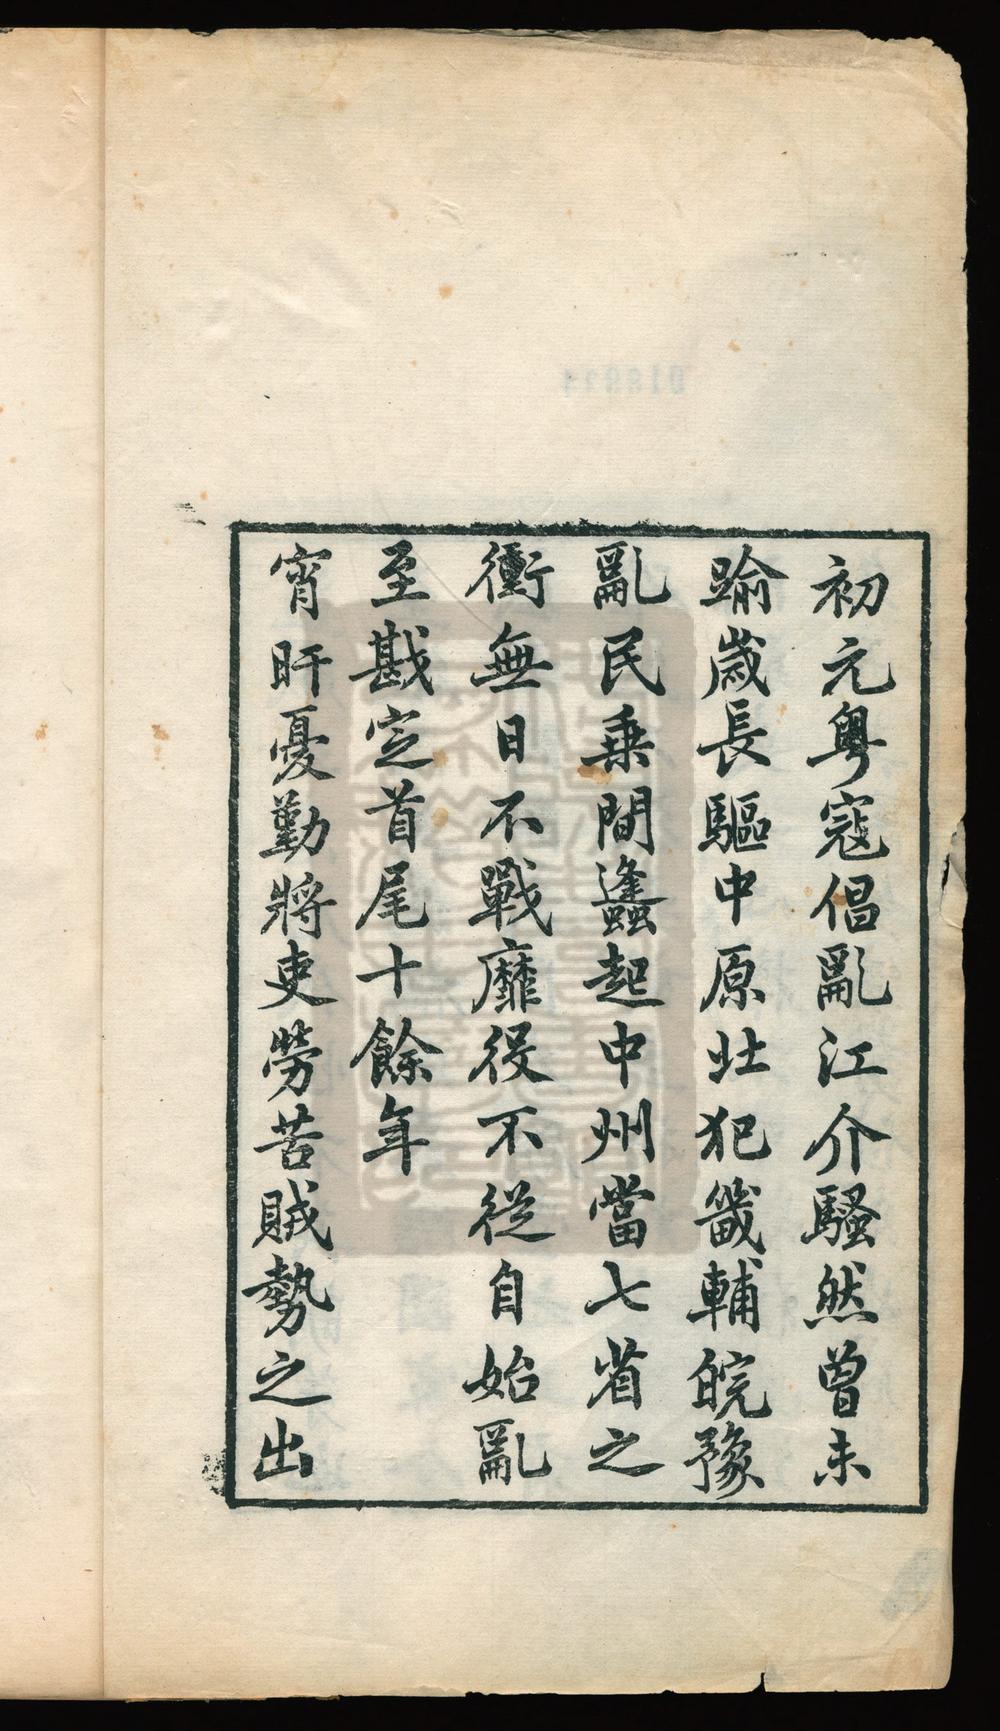 初元粤寇倡亂江介騷然曾未
踰歲長驅中原北犯畿輔皖豫
亂民乘間蠭起中州當七省之
衝無日不戰靡役不從自始亂
至戡定首尾十餘年
宵旰憂勤將吏勞苦賊勢之出